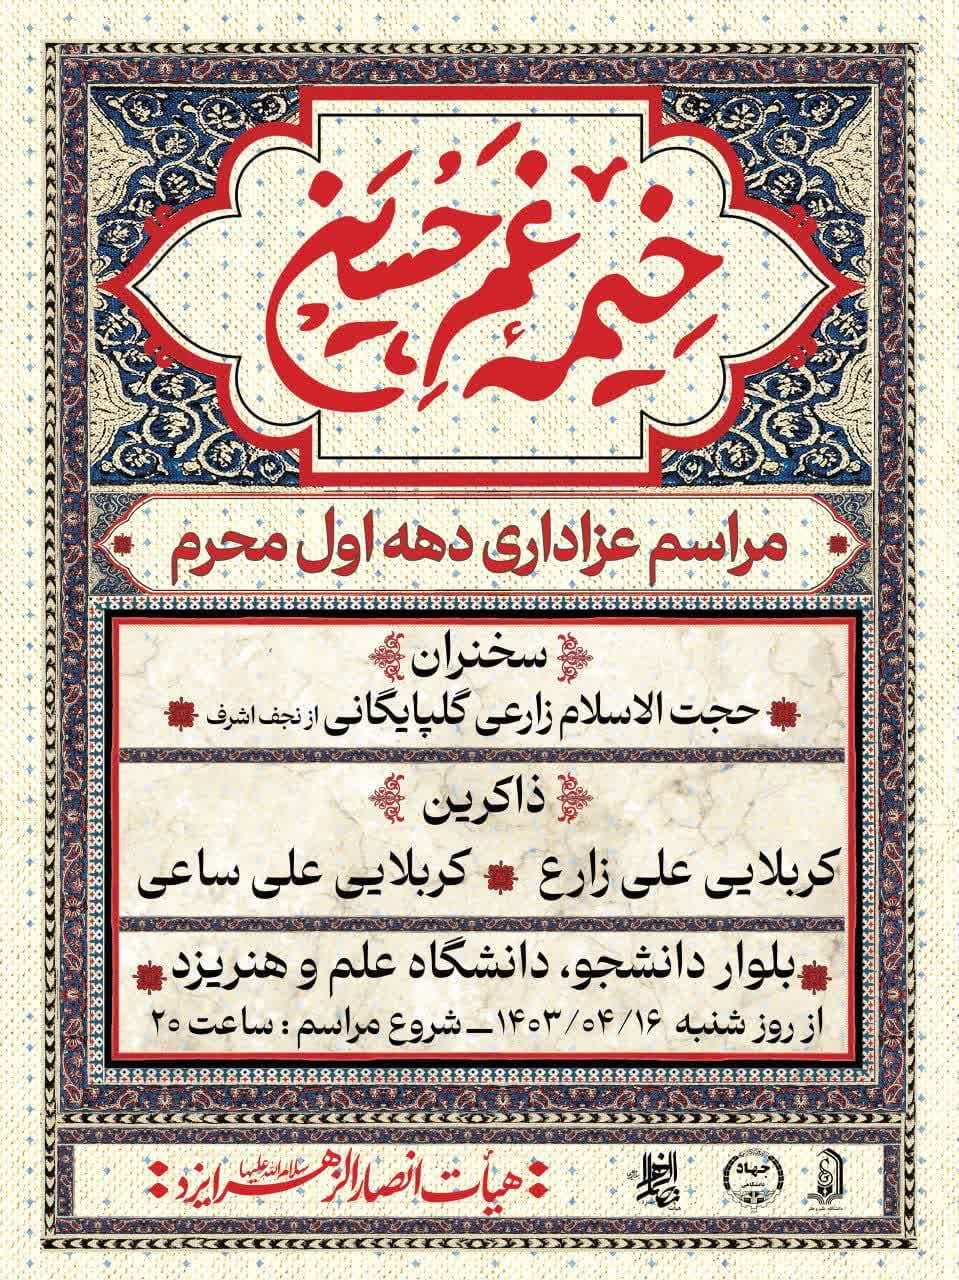 خیمهٔ غم حسین
مراسم عزاداری دهه اول محرم
سخنران
حجت الاسلام زارعی گلپایگانی از نجف اشرف
ذاکرین
کربلایی علی زارع کربلایی علی ساعی
بلوار دانشجو، دانشگاه علم و هنریزد
از روز شنبه ۱۴۰۳/۰۴/۱۶ ــ شروع مراسم : ساعت ۲۰
هیأت انصارالزهرا سلام الله علیها یزد
جهاد
دانشگاهی
دانشگاه علم و هنر